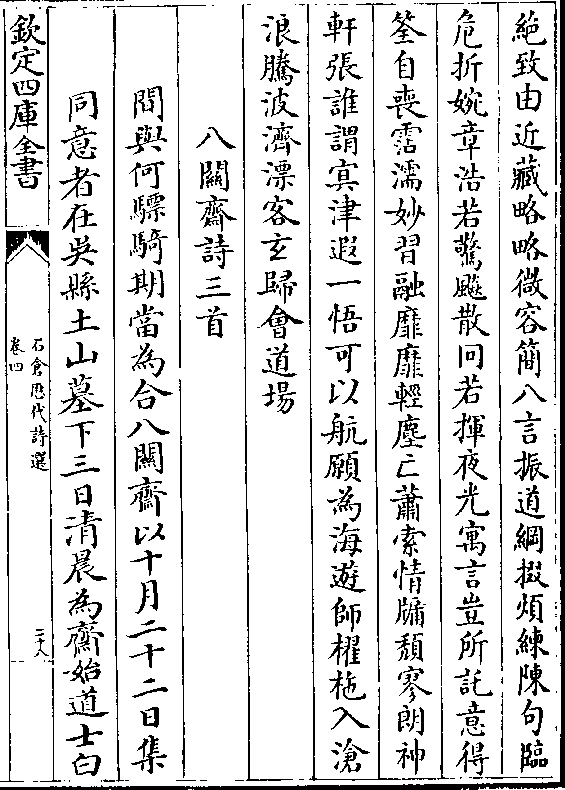 絶致由近藏略略微容簡八言振道綱掇煩練陳句臨
危折婉章浩若驚飈散冏若揮夜光寓言豈所託意得
筌自喪霑濡妙習融靡靡輕塵亡蕭索情牖頹寥朗神
軒張誰謂寘津遐一悟可以航願為海遊師櫂柂入滄
浪騰波濟漂客玄歸會道場
八關齋詩三首
間與何驃騎期當為合八關齋以十月二十二日集
同意者在吳縣土山墓下三日清晨為齋始道士白
欽定四庫全書
石倉歴代詩選
卷四
二十八